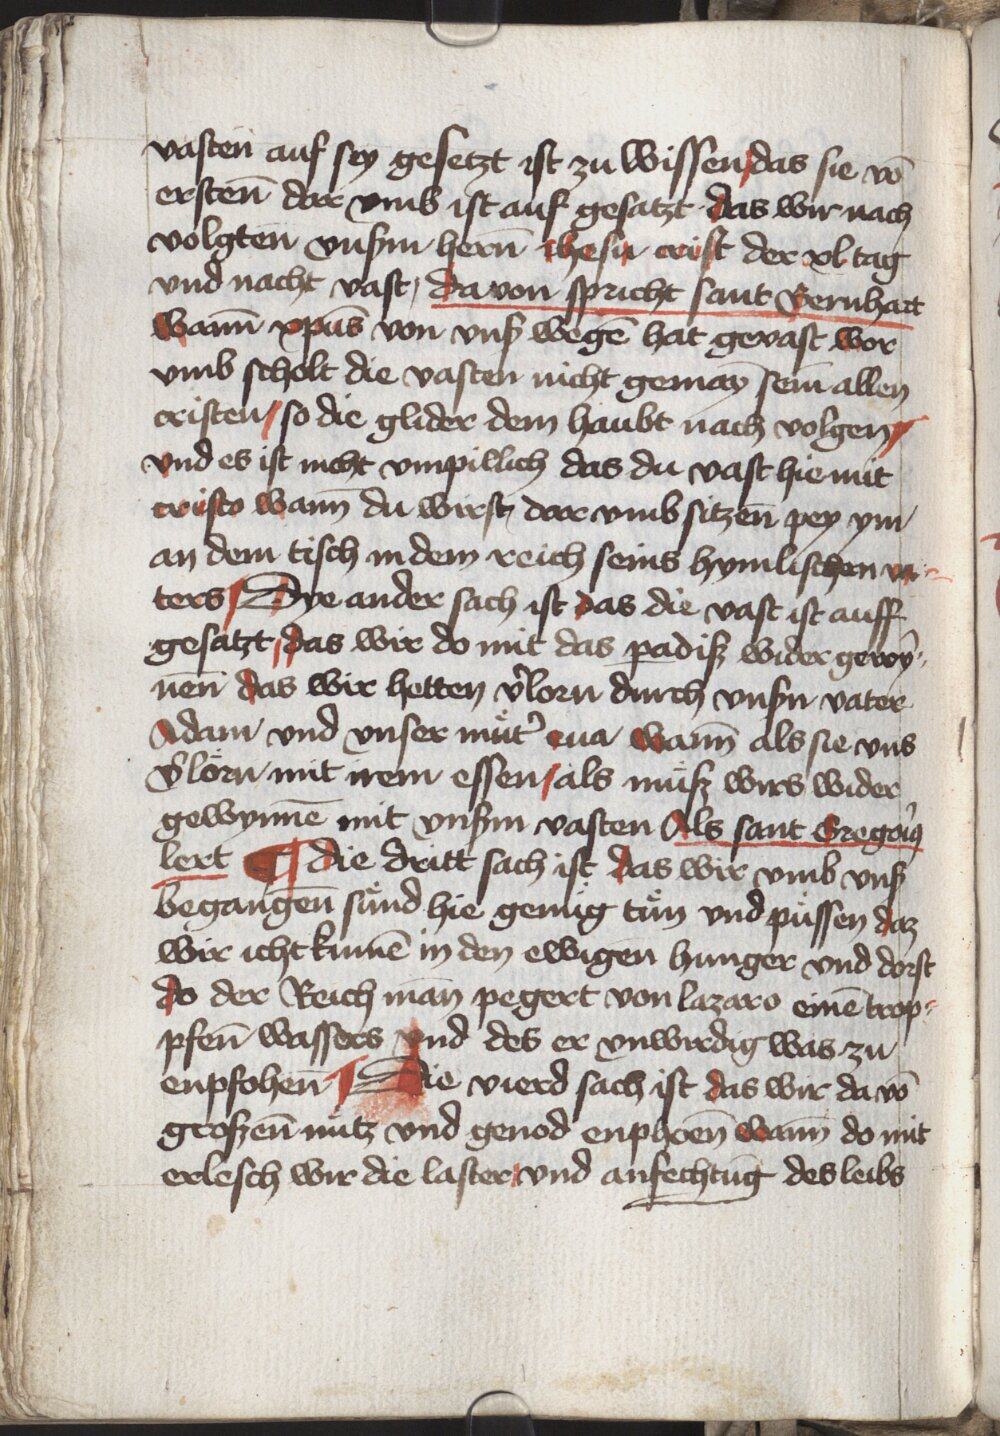 vasten auf sey gesetzt ist zu wissen das sie vō
ersten̄ dar vmb ist auf gesatzt das wir nach
volgten vnſm hern̄ ihesu crist der xl tag
vnd nacht vast / da von spricht sant Bernhart
Wann̄ xp̄us von vnſ wegē hat gevast wor
vmb scholt die vasten nicht gemayn sein allen
cristen / so die glider dem haubt nach volgen /
vnd es ist nicht vnpillich das du vast hie mit
cristo wann̄ du wirst dar vmb sitzen̄ pey ym
an dem tisch in dem reich seins hymlischen va-
ters / Dye ander sach ist das die vast ist auff
gesatzt / das wir do mit das padiß wider gewȳ-
nen das wir hetten v̉lorn durch vnſn vater
Adam vnd vnser mut̉ eua wann̄ als sie vns
v̉lorn mit irem essen / als muß wirs wider
gewynnē mit vnſm vasten Als sant Gregori9
lert ¶ die dritt sach ist das wir vmb vnſ
begangen̄ sund hie genug tun vnd pussen daz
wir icht kumē in den ewigen hunger vnd dorst
do der Reich man pegert von lazaro einē trop-
pfen̄ wassers vnd des er vnwirdig was zu
enpfohen̄ ¶ Die vierd sach ist das wir da vō
großen̄ nutz vnd genod enphoen̄ wann̄ do mit
erlesch wir die laster vnd anfechtūg des leibs